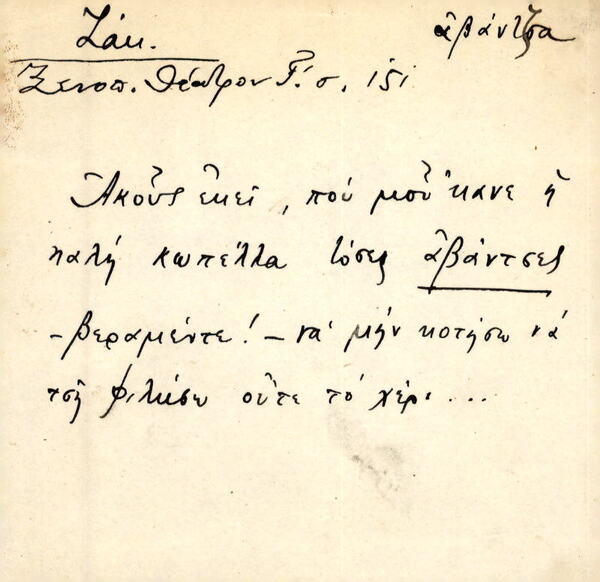 Ζάκ. ἀβάντζα
Ξενοπ. Θέατρον Γ΄. σ. 151
Ἀκοῦς ἐκεῖ, ποὺ μοῦ 'κανε ἡ
καλὴ κωπέλλα τόσες ἀβάντσες
– βεραμέντε! – νὰ μὴν κοτήσω νὰ
τσῆ φιλήσω οὔτε τὸ χέρι...